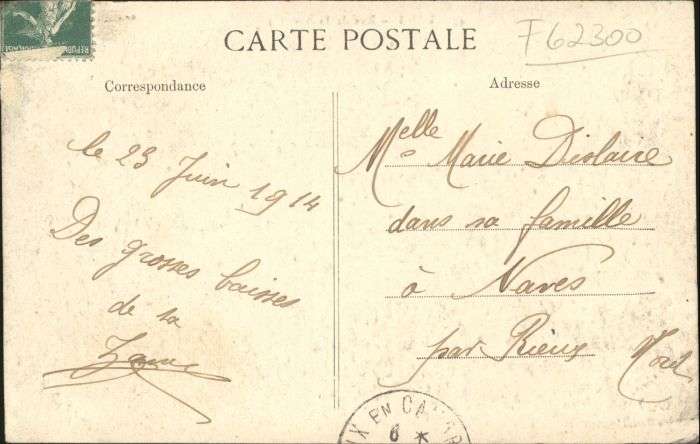 CARTE POSTALE
F62300
Correspondance
Adresse
le 23 Juin 1914
Des grosses baisses
de ta
Melle Marie Dislaire
dans sa famille
à Naves
par Rieux Nord
EN CA
6 *